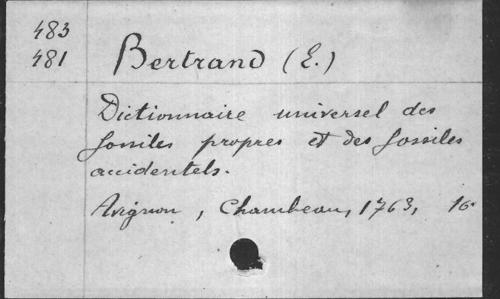 483
481
Bertrand (E.)
Dictionnaire universel des
fossiles propres et des fossiles
accidentels.
Avignon, Chambeau, 1763, 16°